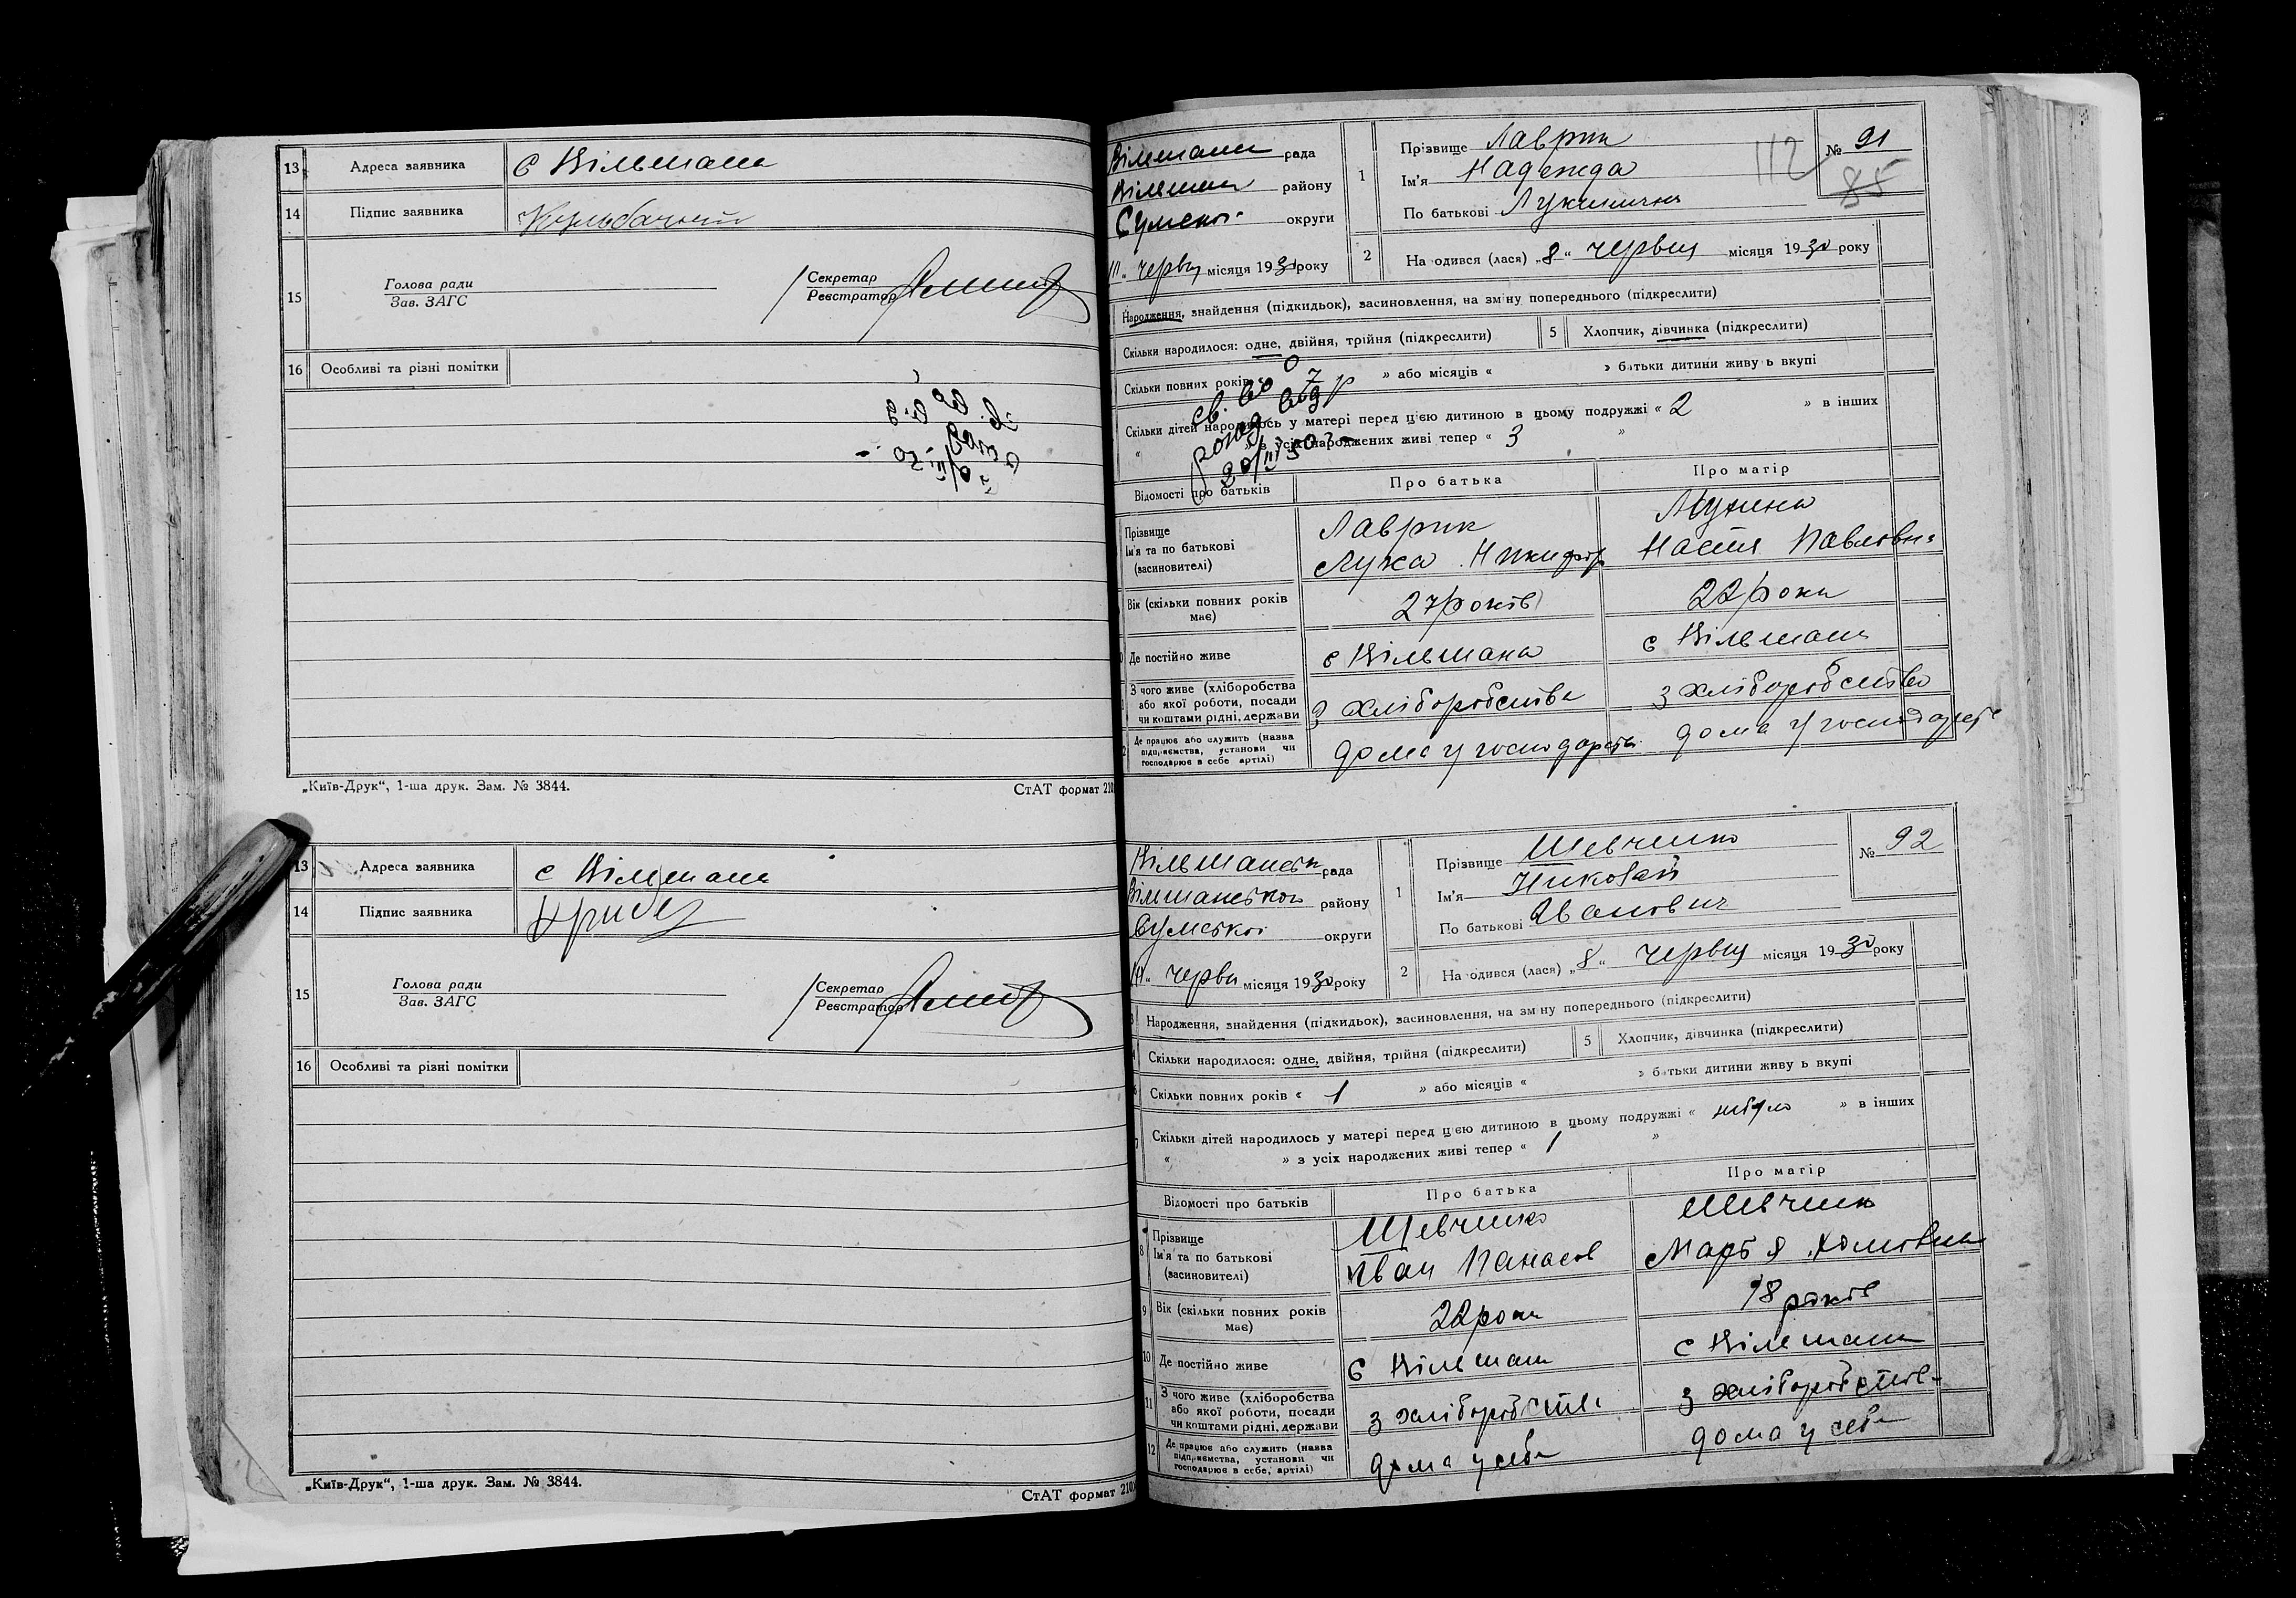 13 Адреса заявника с Вільшана
14 Підпис заявника
15 Голова ради
Зав. ЗАГС
Секретар
Реєстратор
16 Особливі та різні помітки
„Київ-Друк“, 1-ша друк. Зам. № 3844.
СтАТ формат 210
13 Адреса заявника с Вільшана
14 Підпис заявника
15 Голова ради
Зав. ЗАГС
Секретар
Реєстратор
16 Особливі та різні помітки
„Київ-Друк“, 1-ша друк. Зам. № 3844.
СтАТ формат 210
рада
району
Сумської округи
червн місяця 1930 року
1 Прізвище Лаврик
Ім'я Надежда
По батькові
112
№ 91
85
2 На одився (лася) „8“ червня місяця 1930 року
Народження, знайдення (підкидьок), засиновлення, на зм ну попереднього (підкреслити)
Скільки народилося: одне, двійня, трійня (підкреслити)
5 Хлопчик, дівчинка (підкреслити)
Скільки повних років « 7 » або місяців « » батьки дитини живу ь вкупі
Скільки дітей народилось у матері перед цією дитиною в цьому подружжі « 2 » в інших
« » з усіх народжених живі тепер « 3 »
св. во
рожд выд
20/III 50 г
Відомості про батьків
Про батька
Про матір
Прізвище
Ім'я та по батькові
(засиновителі)
Лаврик
Лука Никифор
Настя Павловна
Вік (скільки повних років має)
27 років
22 роки
Де постійно живе
с Вільшана
с Вільшана
З чого живе (хліборобства
або якої роботи, посади
чи коштами рідні, держави
з хліборобства
з хліборобства
Де працює або служить (назва
підприємства, установи чи
господарює в себе, артілі)
дома у господарств
дома у господарств
Вільшанськ рада
Вільшанського району
Сумської округи
червн місяця 1930 року
1 Прізвище Шевченко
Ім'я Николай
По батькові Иванович
№ 92
2 На одився (лася) „8“ червня місяця 1930 року
Народження, знайдення (підкидьок), засиновлення, на зм ну попереднього (підкреслити)
Скільки народилося: одне, двійня, трійня (підкреслити)
5 Хлопчик, дівчинка (підкреслити)
Скільки повних років « 1 » або місяців « » батьки дитини живу ь вкупі
7 Скільки дітей народилось у матері перед цією дитиною в цьому подружжі « небуло » в інших
« » з усіх народжених живі тепер « 1 »
Відомості про батьків
Про батька
Про матір
8 Прізвище
Ім'я та по батькові
(засиновителі)
Шевченко
Іван Панасов
Шевченк
Мар'я Хомовна
9 Вік (скільки повних років має)
22 роки
18 років
10 Де постійно живе
с Вільшана
с Вільшана
11 З чого живе (хліборобства
або якої роботи, посади
чи коштами рідні, держави
з хліборобства
з хліборобств
12 Де працює або служить (назва
підприємства, установи чи
господарює в себе, артілі)
дома у себе
дома у себе